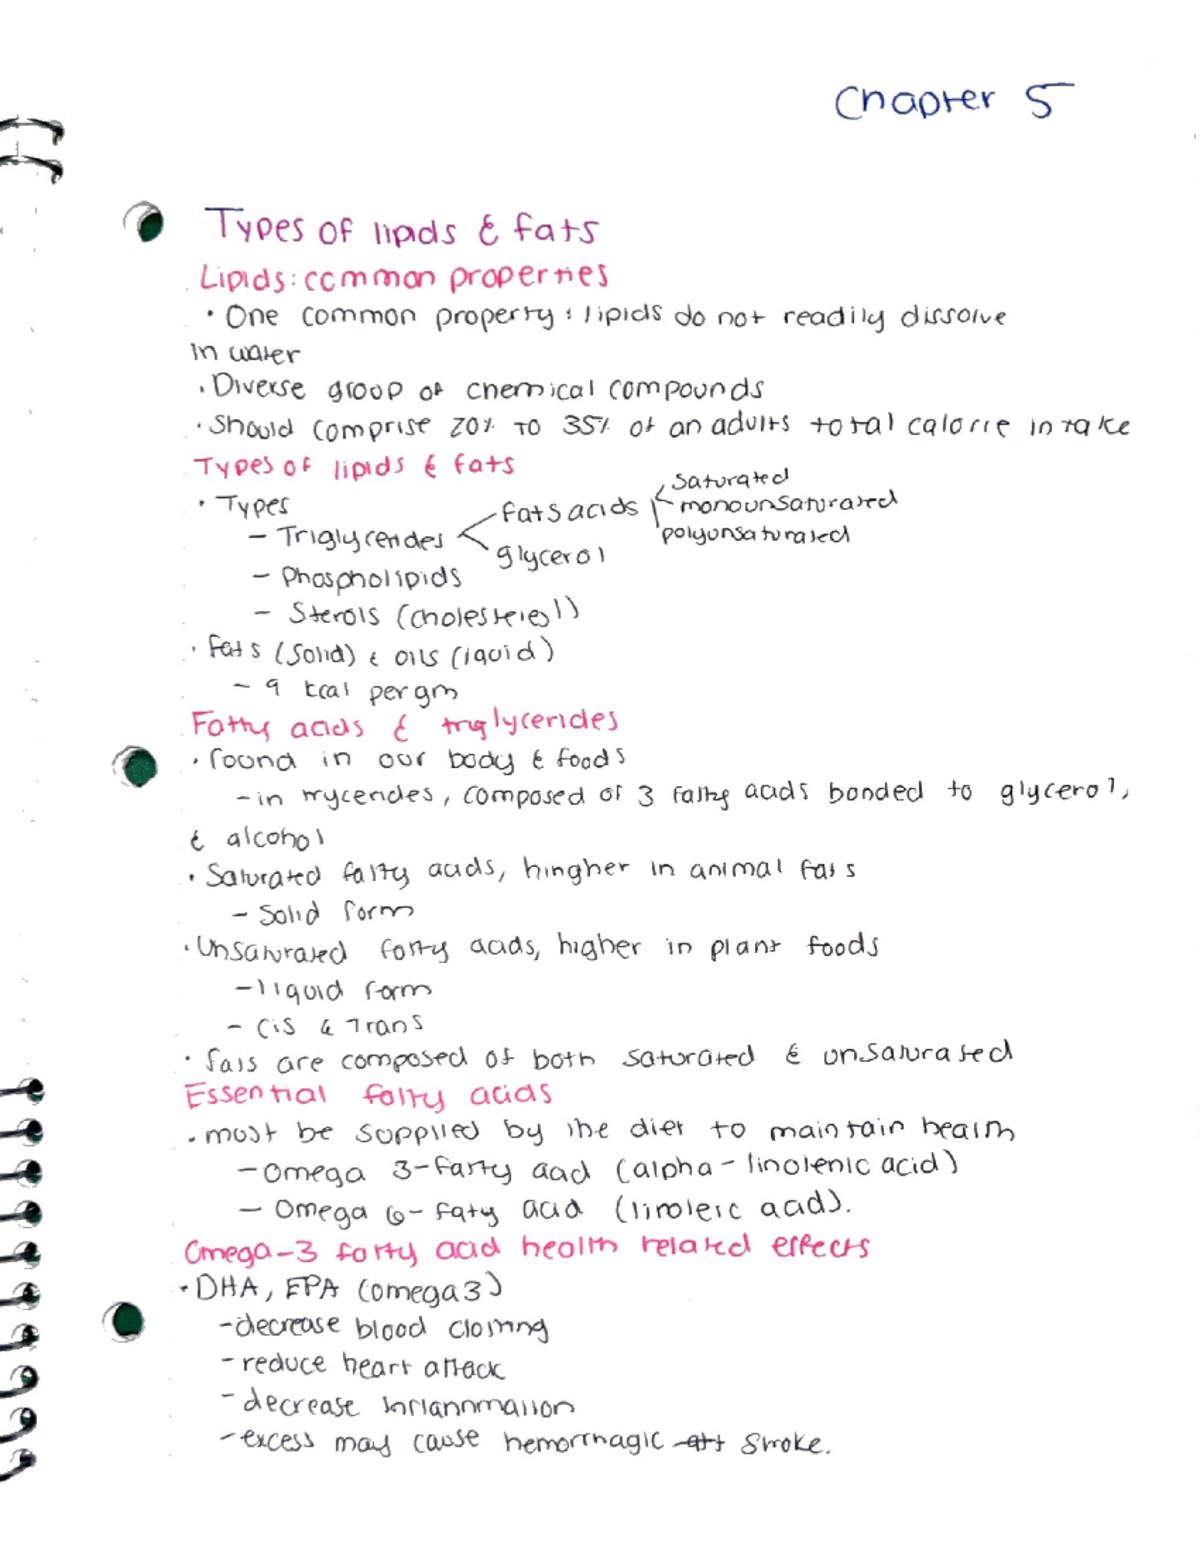 Chapter 5
Types of lipids & fats
Lipids: common properties
• One common property: lipids do not readily dissolve
in water
• Diverse group of chemical compounds
• Should comprise 20% to 35% of an adults total calorie intake
Types of lipids & fats
• Types
- Triglycerides < fats acids < saturated
monounsaturated
polyunsaturated
glycerol
- Phospholipids
- Sterols (cholesterol)
• Fats (solid) & oils (liquid)
- 9 kcal per gm
Fatty acids & triglycerides
• found in our body & foods
- in trycerides, composed of 3 fatty acids bonded to glycerol,
& alcohol
• Saturated fatty acids, hingher in animal fats
- Solid form
• Unsaturated fatty acids, higher in plant foods
- liquid form
- Cis & Trans
• fats are composed of both saturated & unsaturated
Essential fatty acids
• must be supplied by the diet to maintain health
- Omega 3-fatty acid (alpha-linolenic acid)
- Omega 6- faty acid (linoleic acid).
Omega-3 fatty acid health related effects
• DHA, EPA (omega 3)
- decrease blood clotting
- reduce heart attack
- decrease inflammation
- excess may cause hemorrhagic stroke.